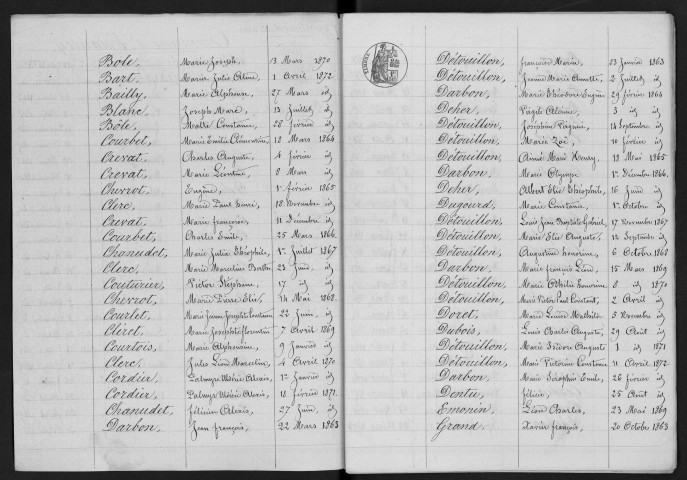 Bole, Marie Joseph, 13 Mars 1870
Bart, Marie Julie Céline, 1 Avril 1872
Bailly, Marie Alphonse, 27 Mars id
Blanc, Joseph Marie, 13 Juillet id
Bôle, Constance, 28 février id
Courbet, Marie Emilie Clémentine, 18 Mars 1864
Crevat, Charles Auguste, 4 février id
Crevat, Marie Léontine, 8 Mars id
Chevrot, Eugène, 1er février 1865
Clerc, Marie Paul henri, 18 Novembre id
Crevat, Marie françoise, 11 Décembre id
Courbet, Charles Emile, 25 Mars 1866
Chanudet, Marie Julie Théophile, 1er Juillet 1867
Clerc, Marie Marceline Berthe, 23 Juin id
Couturier, Victor Stéphane, 17 id id
Chevrot, Marie Pierre Elie, 14 Mai 1868
Courlet, Marie Joseph Constant, 22 Juin id
Cléret, Marie Joséphine florentine, 7 Avril 1869
Courtois, Marie Alphonsine, 9 Janvier id
Clerc, Jules Léon Marcelin, 4 Avril 1870
Cordier, Palmyre Valérie Alexis, 1er Janvier id
Cordier, Palmyr Valérie Alexis, 18 février 1871
Chanudet, félicien Alexis, 27 Juin id
Darbon, Jean françois, 22 Mars 1863
Détouillon, françoise Marie, 03 Janvier 1863
Détouillon, Jeanne Marie Annette, 2 Juillet id
Darbon, Marie Théodore Eugène, 29 février 1864
Deher, 3 id id
Détouillon, Joséphine 14 Septembre id
Détouillon, Marie Zoé, 10 février id
Détouillon, Aimé Marie Henry, 18 Mai 1865
Darbon, Marie Olympe, 1er Décembre 1866
Deher, Albert Elie Théophile, 16 Juin id
Dugourd, Marie Constance, 1er Octobre id
Détouillon, Louis Jean Baptiste Gabriel, 17 Novembre 1867
Détouillon, Marie Elie Auguste, 12 Septembre id
Détouillon, Augustine honorine, 6 Octobre 1868
Darbon, Marie françois Léon, 15 Mars 1869
Détouillon, Marie Othilie honorine, 8 id 1870
Détouillon, Marie Victor Paul Constant, 2 Avril id
Doret, Marie Louise Mathilde, 5 Novembre id
Dubois, Louis Charles Auguste, 29 Août id
Détouillon, Marie Isidore Auguste, 1 id 1871
Détouillon, Marie Victorine Constance, 11 Avril 1872
Darbon, Marie Séraphin Emile, 26 février id
Dentu, félicie, 25 Août id
Emonin, Léon Charles, 23 Mai 1869
Grand, Xavier françois, 20 Octobre 1863